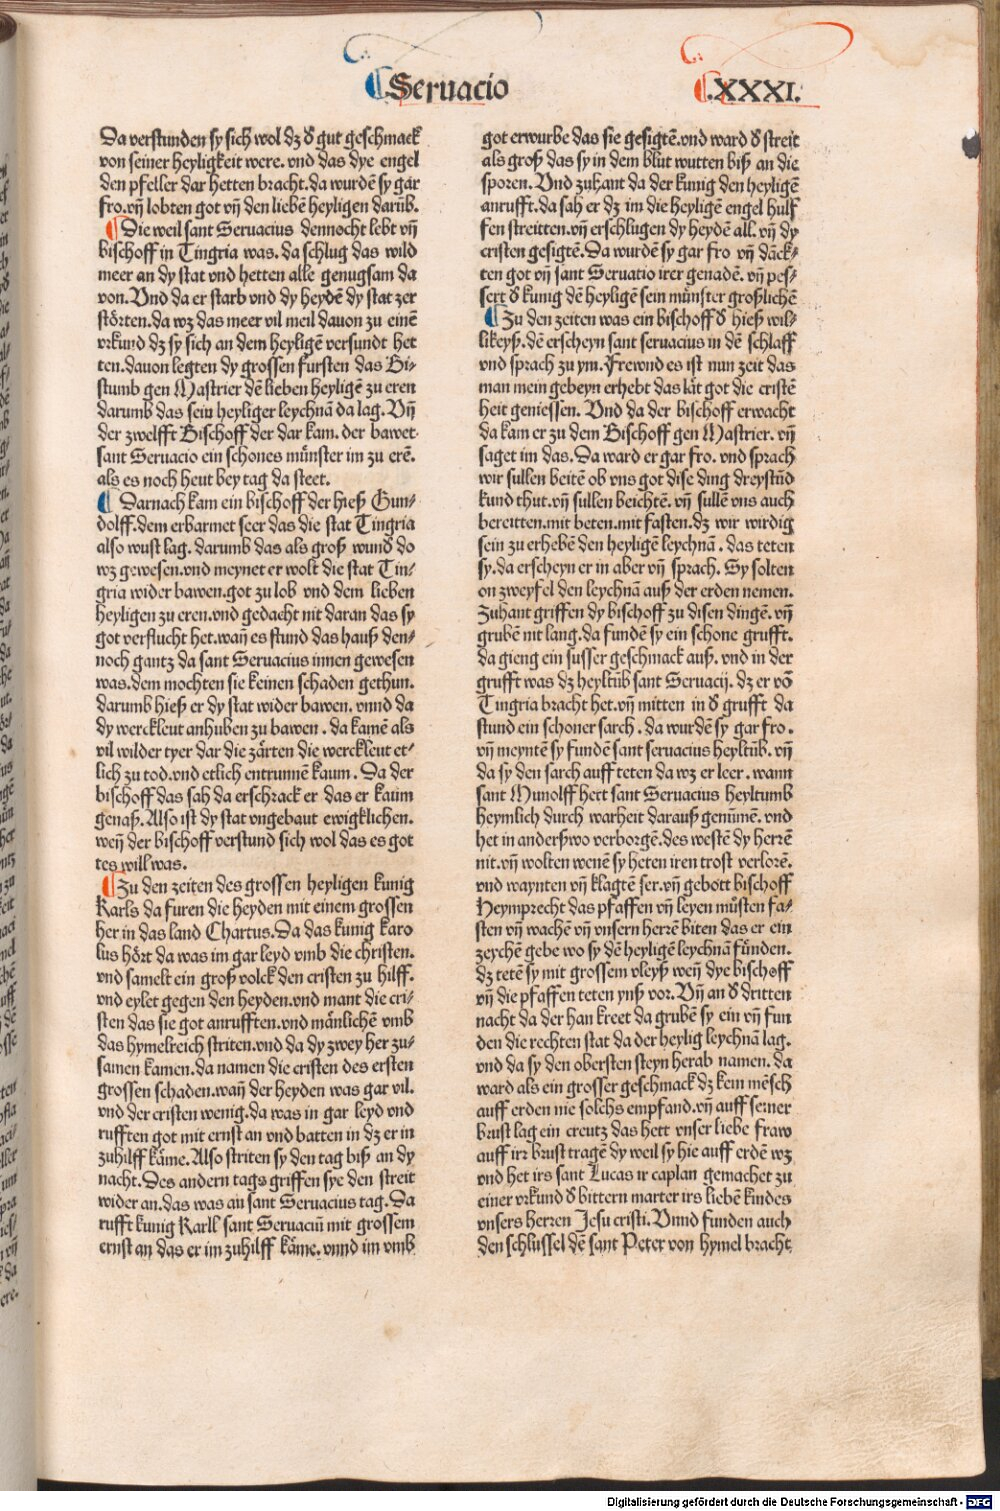 Seruacio
.XXXI.
Da verstunden sy sich wol dz d̕ gut geschmack
von seiner heyligkeit were. vnd das dye engel
den pfeller dar hetten bracht. da wurdē sy gar
fro. vñ lobten got vñ den liebē heyligen darūb.
Die weil sant Seruacius dennocht lebt vñ
bischoff in Tingria was. da schlug das wild
meer an dy stat vnd hetten alle genugsam da
von. Vnd da er starb vnd dy heydē dy stat zer
störten. da wz das meer vil meil dauon zu einē
vrkund dz sy sich an dem heyligē versundt het
ten. dauon legten dy grossen fursten das Bi⸗
stumb gen Mastrier dē lieben heyligē zu eren
darumb das sein heyliger leychnā da lag. Vñ
der zwelfft Bischoff der dar kam. der bawet
sant Seruacio ein schones münster im zu erē.
als es noch heut bey tag da steet.
Darnach kam ein bischoff der hieß Gun⸗
dolff. dem erbarmet seer das die stat Tingria
also wust lag. darumb das als groß wund̕ do
wz gewesen. vnd meynet er wolt die stat Tin⸗
gria wider bawen. got zu lob vnd dem lieben
heyligen zu eren. vnd gedacht nit daran das sy
got verflucht het. wañ es stund das hauß den⸗
noch gantz da sant Seruacius innen gewesen
was. dem mochten sie keinen schaden gethun.
darumb hieß er dy stat wider bawen. vnnd da
dy werckleut anhuben zu bawen. da kamē als
vil wilder tyer dar die zärten die werckleut et⸗
lich zu tod. vnd etlich entrunnē kaum. Da der
bischoff das sah da erschrack er das er kaum
genaß. Also ist dy stat vngebaut ewigklichen.
weñ der bischoff verstund sich wol das es got
tes will was.
Zu den zeiten des grossen heyligen kunig
Karls da furen die heyden mit einem grossen
her in das land Chartus. Da das kunig karo
lus hört da was im gar leyd vmb die christen.
vnd samelt ein groß volck den cristen zu hilff.
vnd eylet gegen den heyden. vnd mant die cri⸗
sten das sie got anrufften. vnd mänlichē vmb
das hymelreich striten. vnd da dy zwey her zu⸗
samen kamen. da namen die cristen des ersten
grossen schaden. wañ der heyden was gar vil.
vnd der cristen wenig. da was in gar leyd vnd
rufften got mit ernst an vnd batten in dz er in
zuhilff käme. Also striten sy den tag biß an dy
nacht. Des andern tags griffen sye den streit
wider an. das was an sant Seruacius tag. Da
rufft kunig Karll sant Seruaciū mit grossem
ernst an das er im zuhilff käme. vnnd im vmb
got erwurbe das sie gesigtē. vnd ward d̕ streit
als groß das sy in dem blut wutten biß an die
sporen. Vnd zuhant da der kunig den heyligē
anrufft. da sah er dz im die heyligē engel hulf
fen streitten. vñ erschlugen dy heydē all. vñ dy
cristen gesigtē. Da wurdē sy gar fro vñ dāck⸗
ten got vñ sant Seruatio irer genadē. vñ pes⸗
sert d̕ kunig dē heyligē sein münster großlichē
Zu den zeiten was ein bischoff d̕ hieß wil⸗
likeyß. dē erscheyn sant seruacius in dē schlaff
vnd sprach zu ym. Frewnd es ist nun zeit das
man mein gebeyn erhebt das lät got die cristē
heit geniessen. Vnd da der bischoff erwacht
da kam er zu dem Bischoff gen Mastrier. vñ
saget im das. Da ward er gar fro. vnd sprach
wir sullen beitē ob vns got dise ding dreystūd
kund thut. vñ sullen beichtē. vñ sullē vns auch
bereitten. mit beten. mit fasten. dz wir wirdig
sein zu erhebē den heyligē leychnā. das teten
sy. da erscheyn er in aber vñ sprach. Sy solten
on zweyfel den leychnā auß der erden nemen.
Zuhant griffen dy bischoff zu disen dingē. vñ
grubē nit lang. da fundē sy ein schone grufft.
da gieng ein susser geschmack auß. vnd in der
grufft was dz heyltūb sant Seruacij. dz er võ
Tingria bracht het. vñ mitten in d̕ grufft da
stund ein schoner sarch. da wurdē sy gar fro.
vñ meyntē sy fundē sant seruacius heyltūb. vñ
da sy den sarch auff teten da wz er leer. wann
sant Munolff hett sant Seruacius heyltumb
heymlich durch warheit darauß genūmē. vnd
het in anderßwo verborgē. des westē dy herrē
nit. vñ wolten wenē sy heten iren trost verlorē.
vnd waynten vñ klagtē ser. vñ gebott bischoff
Heymprecht das pfaffen vñ leyen müsten fa⸗
sten vñ wachē vñ vnsern herrē biten das er ein
zeychē gebe wo sy dē heyligē leychnā fünden.
dz tetē sy mit grossem vleyß weñ dye bischoff
vñ die pfaffen teten ynß vor. Vñ an d̕ dritten
nacht da der han kreet da grubē sy ein vñ fun
den die rechten stat da der heylig leychnā lag.
vnd da sy den obersten steyn herab namen. da
ward als ein grosser geschmack dz kein mēsch
auff erden nie solchs empfand. vñ auff seiner
brust lag ein creutz das hett vnser liebe fraw
auff irr brust tragē dy weil sy hie auff erdē wz
vnd het irs sant Lucas ir caplan gemachet zu
einer vrkund d̕ bittern marter irs liebē kindes
vnsers herren Jesu cristi. Vnnd funden auch
den schlussel dē sant Peter von hymel bracht
Digitalisierung gefördert durch die Deutsche Forschungsgemeinschaft - DFG